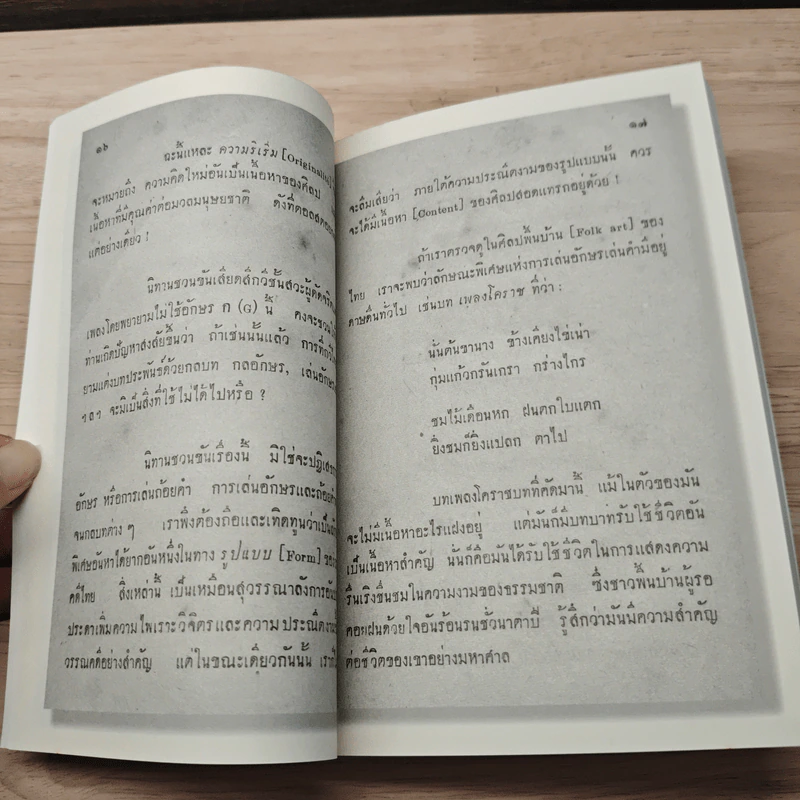 ๑๖
ฉะนี้แหละ ความริเริ่ม [Originality]
จะหมายถึง ความคิดใหม่อันเป็นเนื้อหาของศิลป
เนื้อหาที่มีคุณค่าต่อมวลมนุษยชาติ ดังที่ตอลสตอย
แต่อย่างเดียว !
นิทานชวนขันเสียดสีกวีชั้นสวะผู้ดัดจริต
เพลงโดยพยายามไม่ใช้อักษร ก (G) นี้ คงจะชวน
ท่านเกิดปัญหาสงสัยขึ้นว่า ถ้าเช่นนั้นแล้ว การที่กวี
ยามแต่งบทประพันธ์ด้วยกลบท กลอักษร, เล่นอักษร
ฯลฯ จะมิเป็นสิ่งที่ใช้ไม่ได้ไปหรือ ?
นิทานชวนขันเรื่องนี้ มิใช่จะปฏิเสธ
อักษร หรือการเล่นถ้อยคำ การเล่นอักษรและถ้อยคำ
จนกลบทต่าง ๆ เราพึงต้องถือและเทิดทูนว่าเป็น
พิเศษอันหาได้ยากอันหนึ่งในทาง รูปแบบ [Form] ของ
คดีไทย สิ่งเหล่านี้ เป็นเหมือนสุวรรณาลังการ
ประดาเพิ่มความไพเราะวิจิตรและความประณีตงาม
วรรณคดีอย่างสำคัญ แต่ในขณะเดียวกันนั้น
๑๗
จะลืมเสียว่า ภายใต้ความประณีตงามของรูปแบบนั้น ควร
จะได้มีเนื้อหา [Content] ของศิลปสอดแทรกอยู่ด้วย !
ถ้าเราตรวจดูในศิลปพื้นบ้าน [Folk art] ของ
ไทย เราจะพบว่าลักษณะพิเศษแห่งการเล่นอักษรเล่นคำมีอยู่
ดาษดื่นทั่วไป เช่นบท เพลงโคราช ที่ว่า :
นั่นต้นชานาง ข้างเคียงไข่เน่า
กุ่มแก้วกรันเกรา กร่างไกร
ชมไม้เดือนหก ฝนตกใบแตก
ยิ่งชมก็ยิ่งแปลก ตาไป
บทเพลงโคราชบทที่คัดมานี้ แม้ในตัวของมัน
จะไม่มีเนื้อหาอะไรแฝงอยู่ แต่มันก็มีบทบาทรับใช้ชีวิตอัน
เป็นเนื้อหาสำคัญ นั่นก็คือมันได้รับใช้ชีวิตในการแสดงความ
รื่นเริงชื่นชมในความงามของธรรมชาติ ซึ่งชาวพื้นบ้านผู้รอ
คอยฝนด้วยใจอันร้อนรนชั่วนาตาปี รู้สึกว่ามันมีความสำคัญ
ต่อชีวิตของเขาอย่างมหาศาล